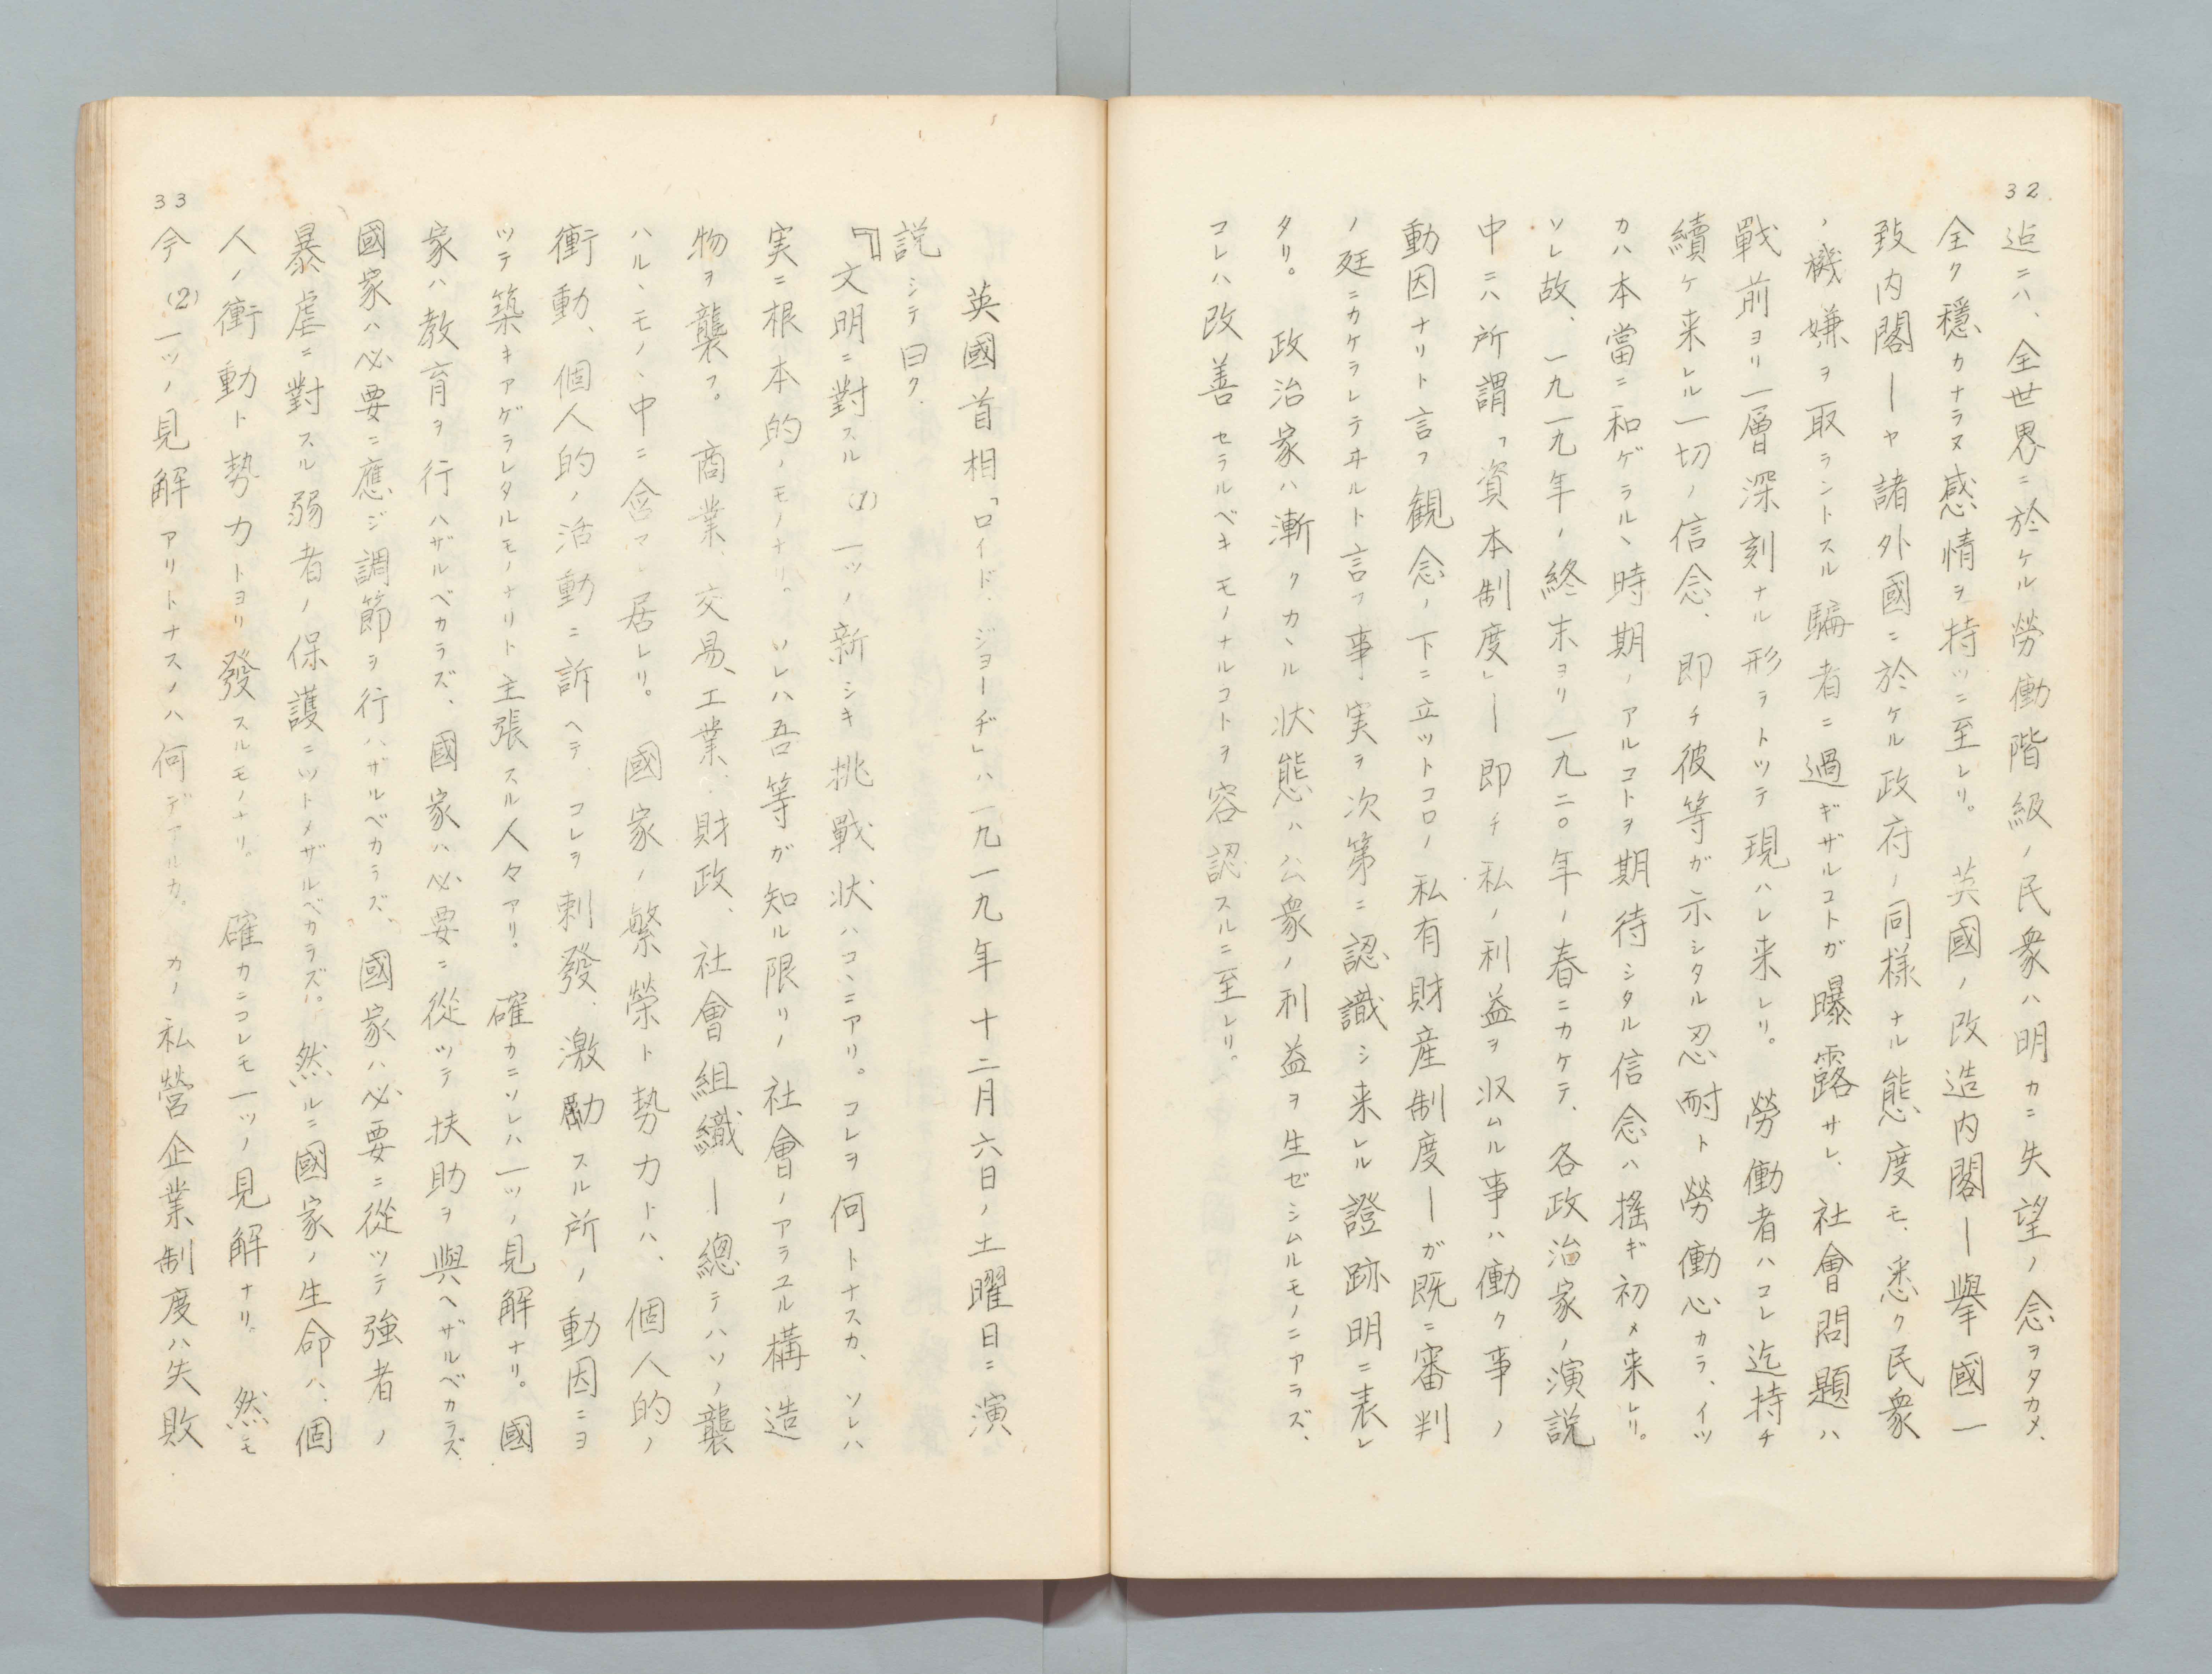 32
迠ニハ、全世界ニ於ケル勞働階級ノ民衆ハ明カニ失望ノ念ヲタカメ、
全ク穏カナラヌ感情ヲ持ツニ至レリ。　英國ノ改造内閣ー擧國一
致内閣ーヤ諸外國ニ於ケル政府ノ同様ナル態度モ、悉ク民衆
ノ機嫌ヲ取ラントスル騙者ニ過ギザルコトガ曝露サレ、社會問題ハ
戰前ヨリ一層深刻ナル形ヲトツテ現ハレ来レリ。　勞働者ハコレ迄持チ
續ケ来レル一切ノ信念、即チ彼等ガ示シタル忍耐ト勞働心カラ、イツ
カハ本當ニ和ゲラルヽ時期ノアルコトヲ期待シタル信念ハ搖ギ初メ来レリ。
ソレ故、一九一九年ノ終末ヨリ一九二〇年ノ春ニカケテ、各政治家ノ演説
中ニハ所謂「資本制度」ー即チ私ノ利益ヲ収ムル事ハ働ク事ノ
動因ナリト言フ観念ノ下ニ立ツトコロノ私有財産制度ーガ既ニ審判
ノ廷ニカケラレテヰルト言フ事実ヲ次第ニ認識シ来レル證跡明ニ表レ
タリ。　政治家ハ漸クカヽル状態ハ公衆ノ利益ヲ生ゼシムルモノニアラズ、
コレハ改善セラルベキモノナルコトヲ容認スルニ至レリ。
英國首相「ロイド、ジョーヂ」ハ一九一九年十二月六日ノ土曜日ニ演
説シテ曰ク.
『文明ニ對スル(1)一ツノ新シキ挑戰状ハコヽニアリ。コレヲ何トナスカ、ソレハ
実ニ根本的ノモノナリ。　ソレハ吾等ガ知ル限リノ社會ノアラユル構造
物ヲ襲フ。商業、交易、工業、財政、社會組織ー總テハソノ襲
ハルヽモノヽ中ニ含マレ居レリ。　國家ノ繁榮ト勢力トハ、個人的ノ
衝動、個人的ノ活動ニ訴ヘテ、コレヲ刺發、激勵スル所ノ動因ニヨ
ツテ築キアゲラレタルモノナリト主張スル人々アリ。　確カニソレハ一ツノ見解ナリ。國
家ハ教育ヲ行ハザルベカラズ、國家ハ必要ニ從ツテ扶助ヲ與ヘザルベカラズ、
國家ハ必要ニ應ジ調節ヲ行ハザルベカラズ、國家ハ必要ニ從ツテ強者ノ
暴虐ニ對スル弱者ノ保護ニツトメザルベカラズ。然ルニ國家ノ生命ハ、個
人ノ衝動ト勢力トヨリ發スルモノナリ。　確カニコレモ一ツノ見解ナリ。　然モ
33
今(2)一ツノ見解アリトナスノハ何デアルカ。　カノ私營企業制度ハ失敗